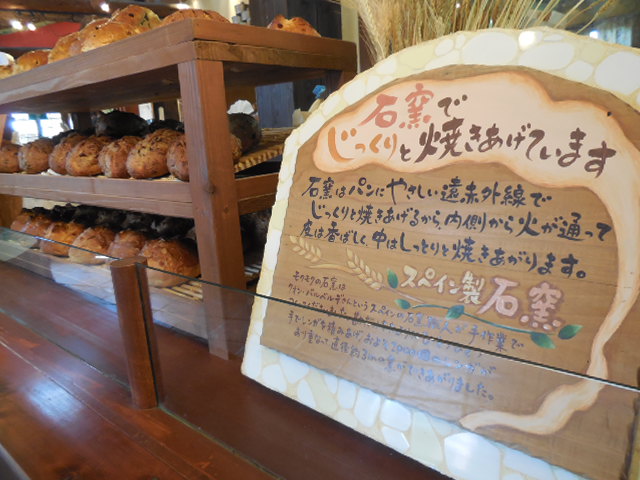 石窯で
じっくりと焼きあげています
石窯はパンにやさしい遠赤外線で
じっくりと焼きあげるから、内側から火が通って
皮は香ばしく、中はしっとりと焼きあがります。
スペイン製石窯
モクモクの石窯は
というスペインの石窯職人が手作業で
手でレンガを積みあげ、およそ2000個のレンガが
直径約3mの窯ができあがりました。